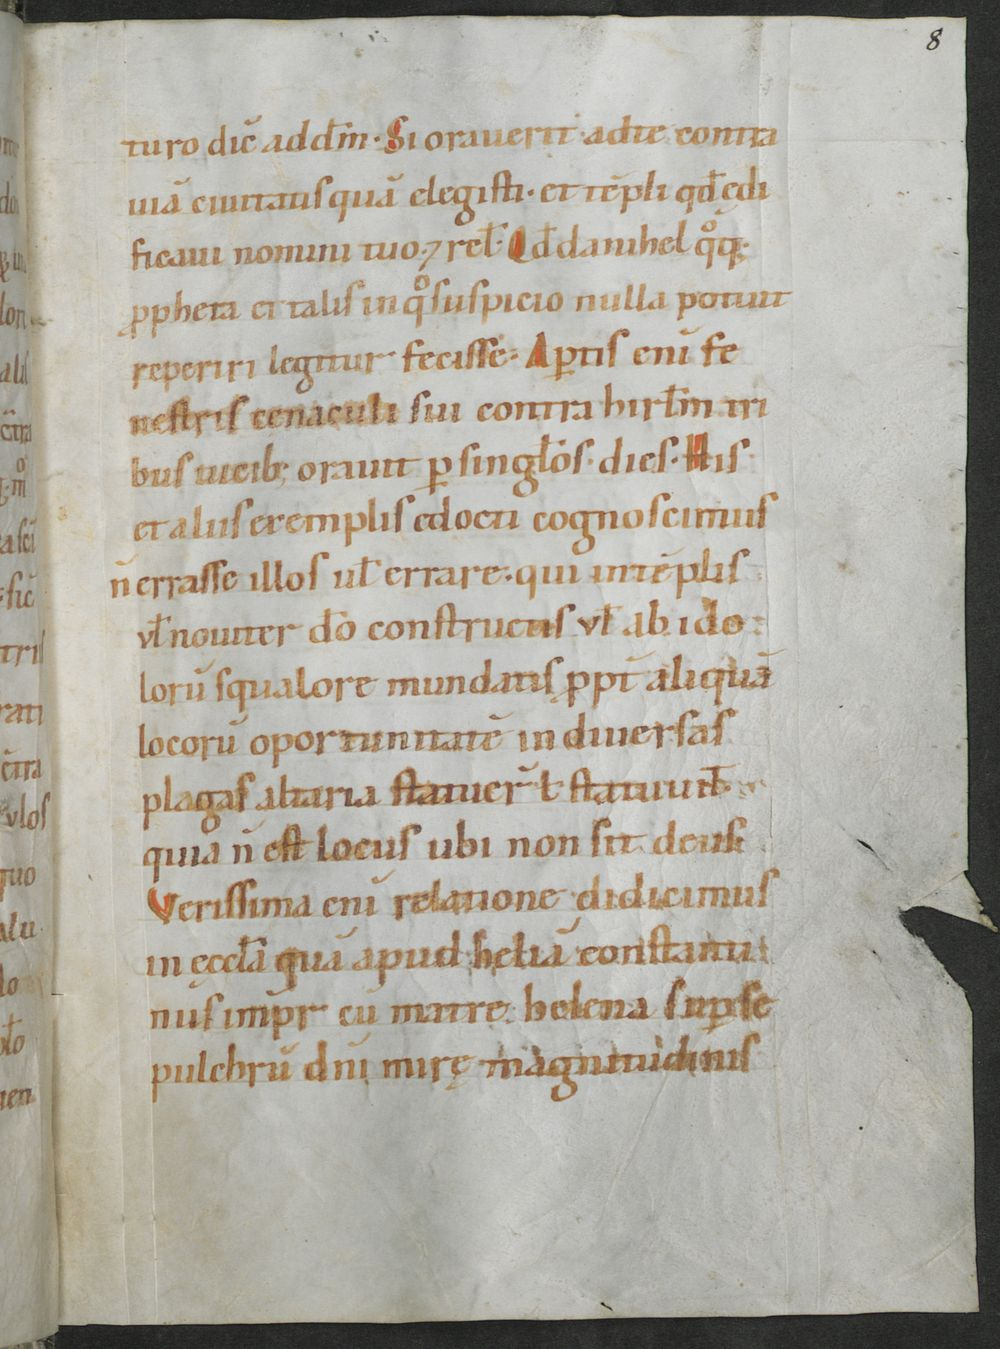 8
turo dic̄ ad dn̄m · Si orauerit ad te contra
uiā ciuitatis quā elegisti · et tēpli qd̄ ędi
ficaui nomini tuo · ⁊ rel̄ · Qd̄ danihel qͦq;
ꝓpheta et talis in qͦ suspicio nulla potuit
reperiri legitur fecisse · Aꝑtis enī fe
nestris cenaculi sui contra hirl̄m tri
bus uicib; orauit ꝑ singl̄os · dies · His
et aliis exemplis edocti cognoscimus
n̄ errasse illos ul̄ errare · qui in tēplis
vl̄ nouiter dō constructis vl̄ ab ido
lorū squalore mundatis ꝓpt̄ aliquā
locorū oportunitatē in diuersas
plagas altaria statuer̄ ł statuunt
quia n̄ est locus ubi non sit deus
Verissima enī relatione didicimus
in ęccl̄a quā apud heliā constanti
nus impr̄ cū matre helena suꝑ se
pulchrū dn̄i mirę magnitudinis